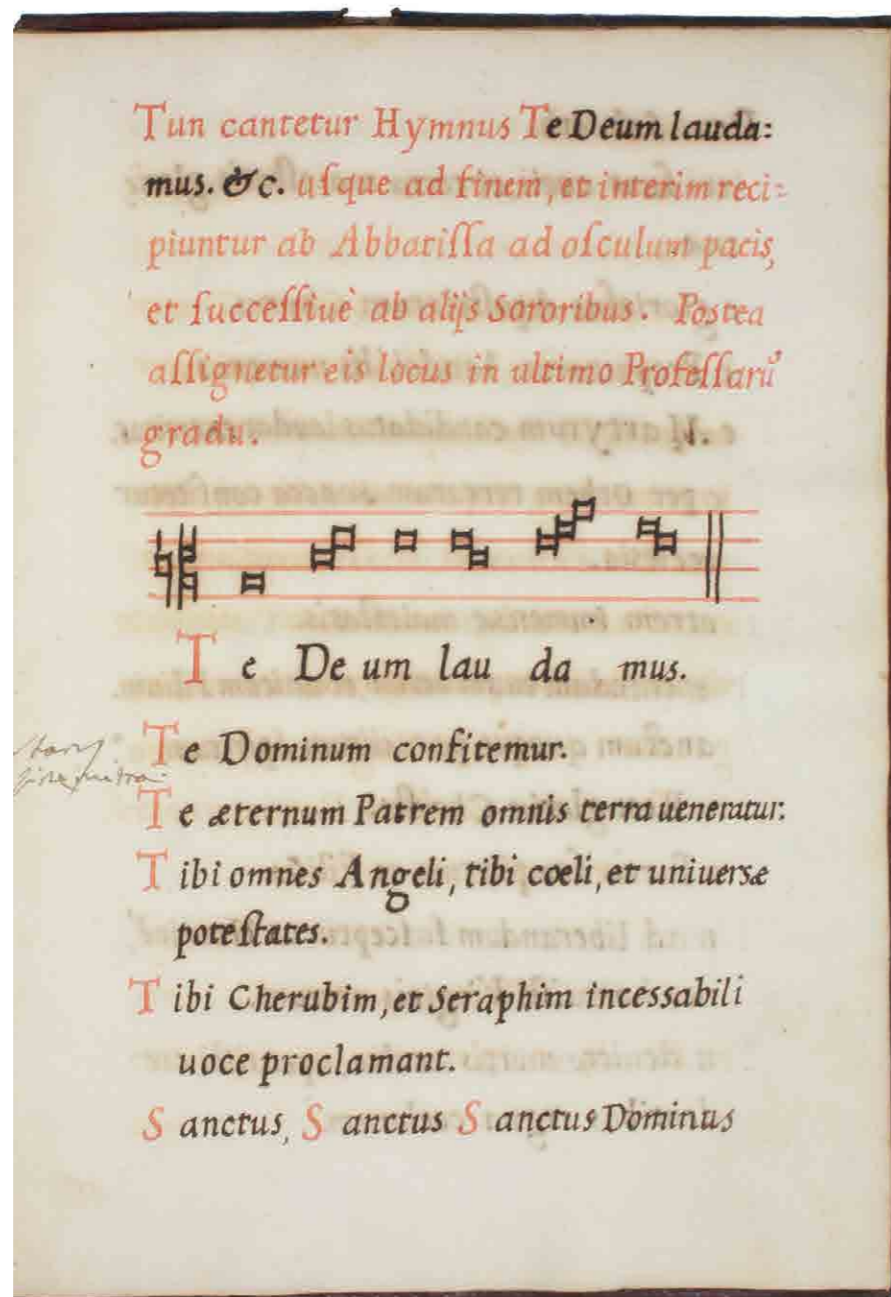 Tun cantetur Hymnus Te Deum lauda:
mus. &c. uſque ad finem, et interim reci:
piuntur ab Abbatiſſa ad oſculum pacis,
et ſucceſſiuè ab alijs Sororibus. Postea
aſſignetur eis locus in ultimo Profeſſarũ
gradu.
Te De um lau da mus.
Te Dominum confitemur.
Te æternum Patrem omnis terra ueneratur.
Tibi omnes Angeli, tibi cœli, et uniuersæ
poteſtates.
Tibi Cherubim, et Seraphim incessabili
uoce proclamant.
Sanctus, Sanctus Sanctus Dominus